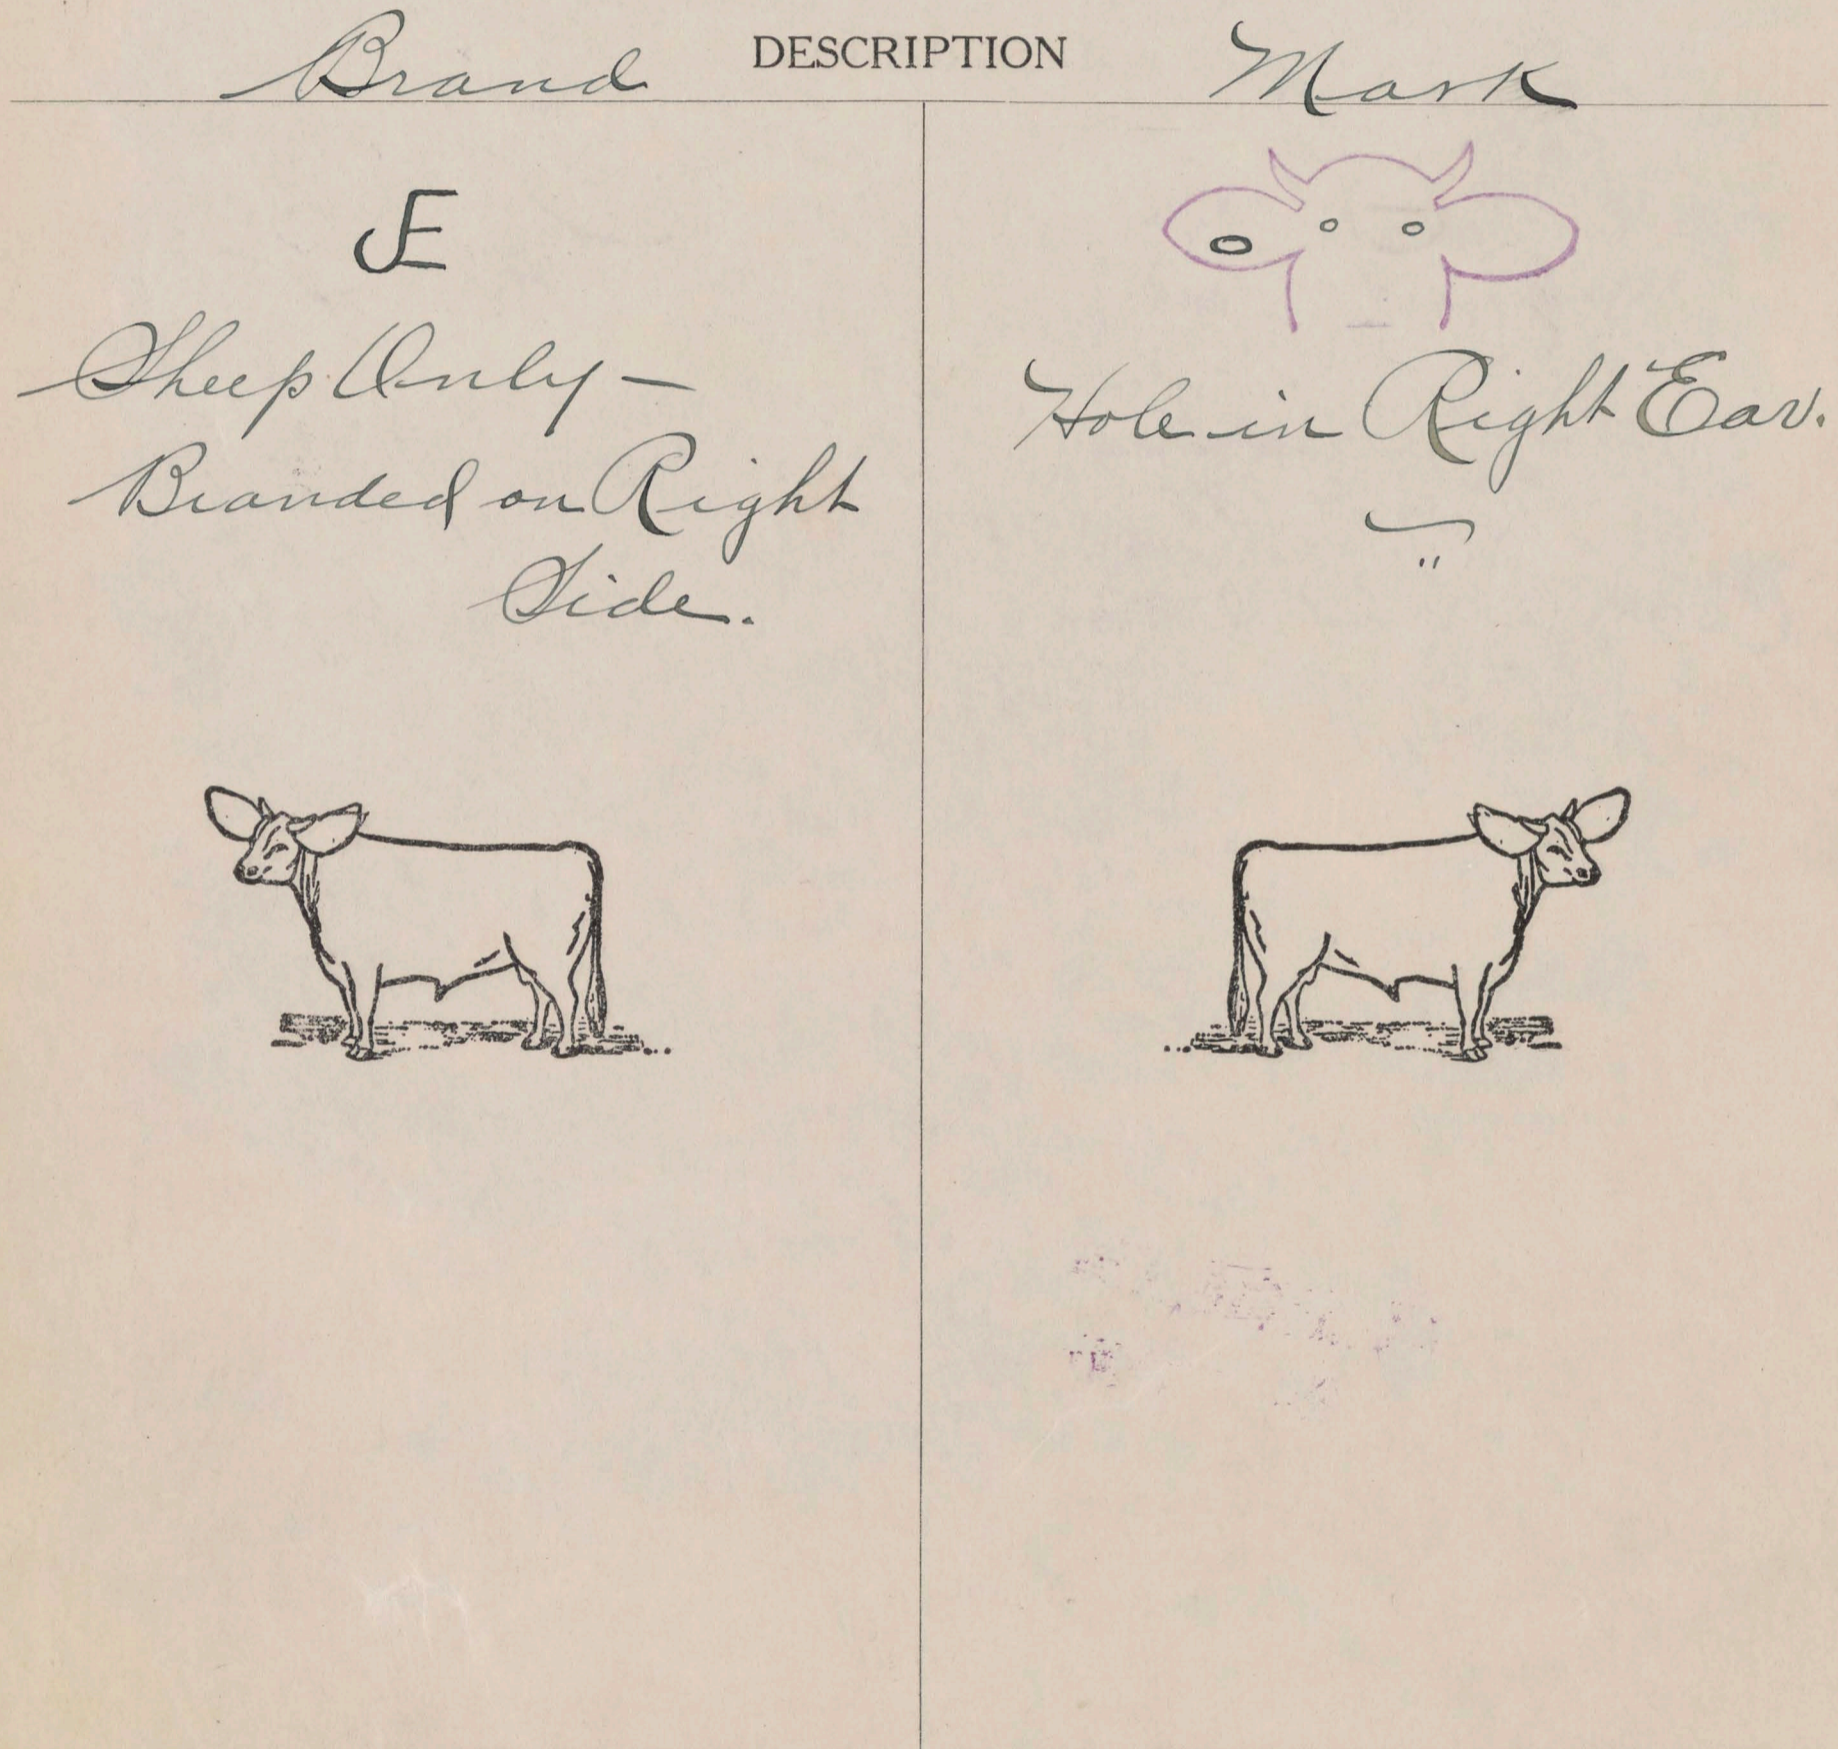 Brand DESCRIPTION Mark
JE
Sheep Only —
Branded on Right
Side.
Hole in Right Ear.